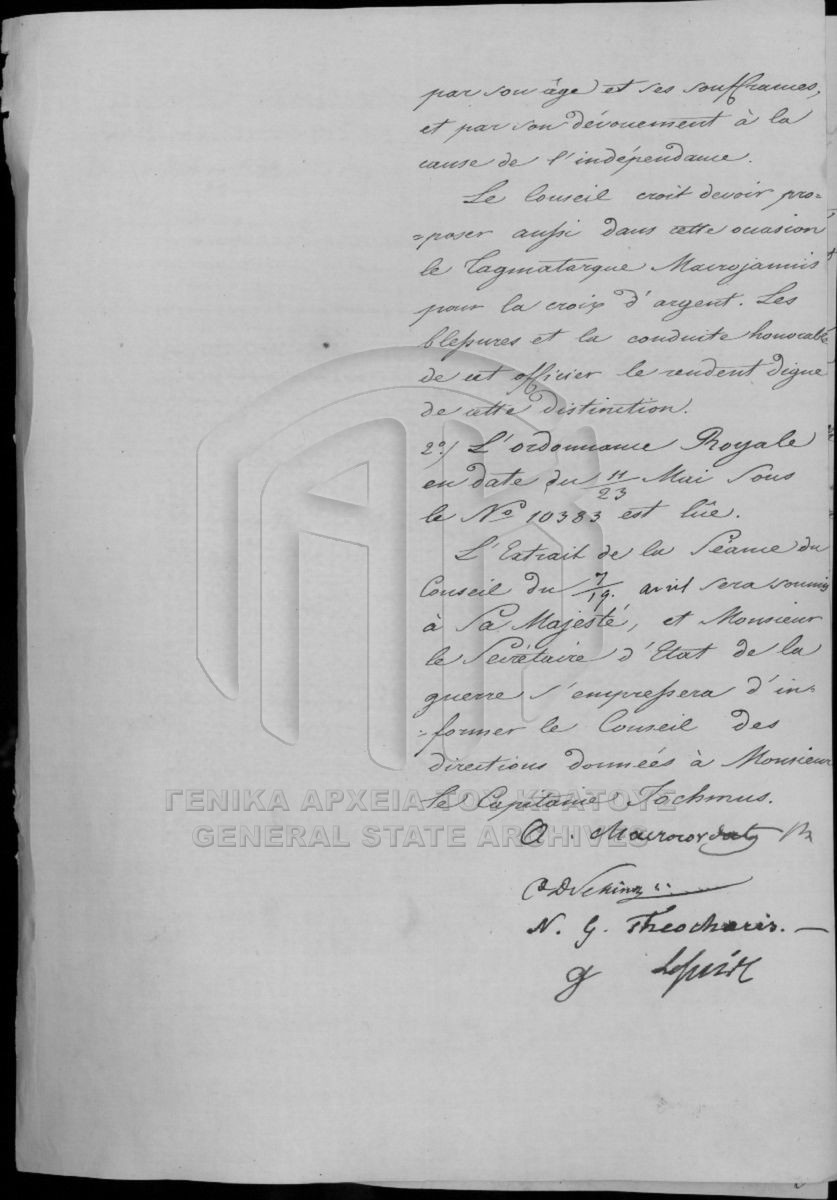 par son âge et ses souffrances,
et par son dévouement à la
cause de l'indépendance.
Le Conseil croit devoir pro=
=poser aussi dans cette occasion
le Tagmatarque Macrojannis
pour la croix d'argent. Les
blessures et la conduite honorable
de cet officier le rendent digne
de cette distinction.
2º) L'ordonnance Royale
en date du 11/23 Mai sous
le Nº 10383 est lûe.
L'Extrait de la Séance du
Conseil du 7/19. avril sera soumis
à Sa Majesté, et Monsieur
le Secrétaire d'Etat de la
guerre s'empressera d'in=
=former le Conseil des
directions données à Monsieur
le Capitaine Jochmus.
ΓΕΝΙΚΑ ΑΡΧΕΙΑ ΤΟΥ ΚΡΑΤΟΥΣ
GENERAL STATE ARCHIVES
A. Maurocordatos
C D Schinas
N. G. Theocharis.